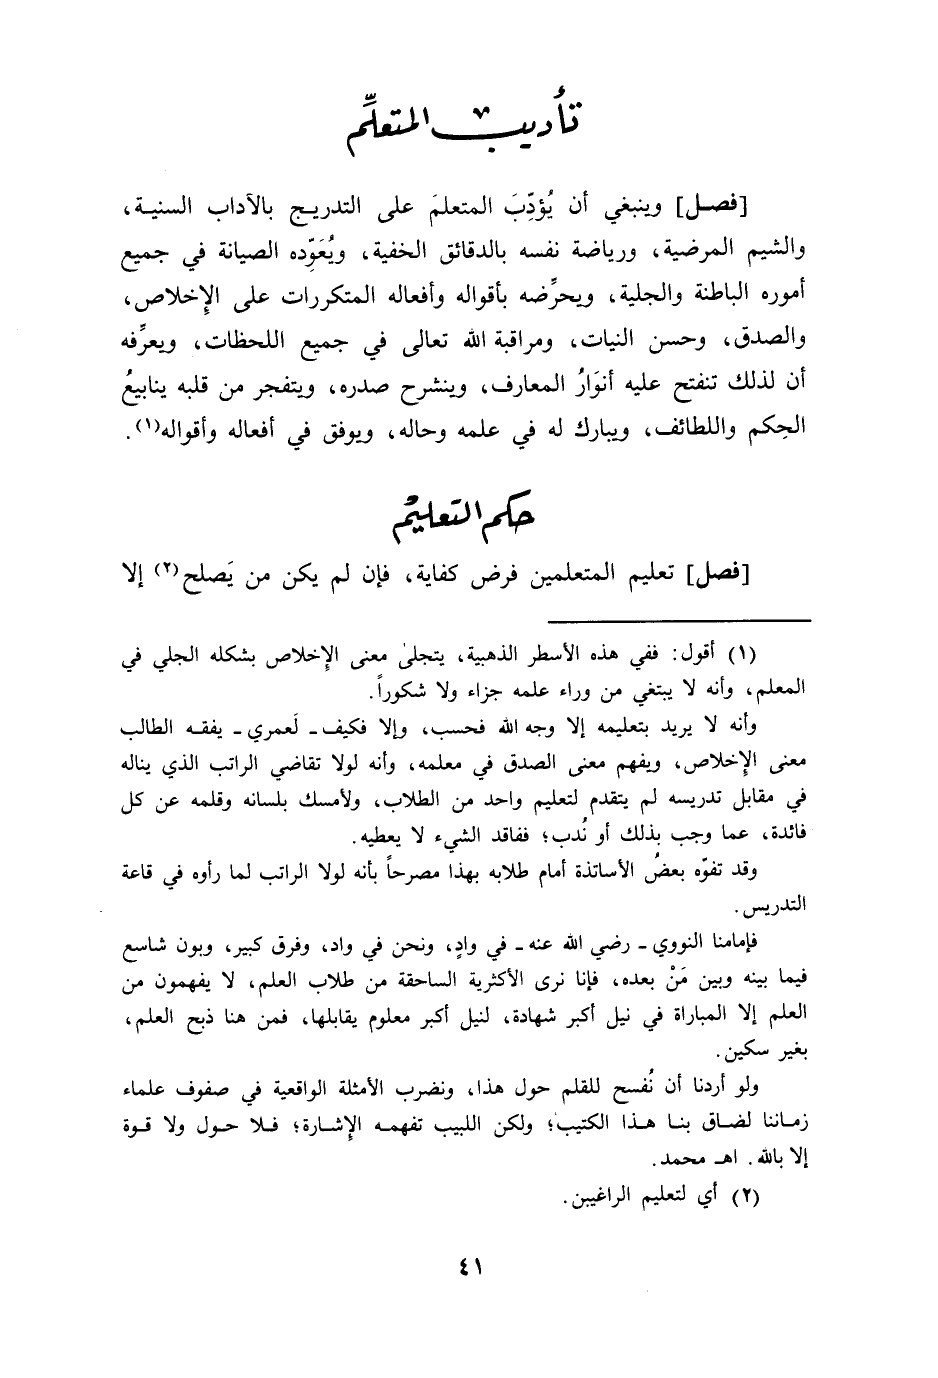 تأديب المتعلِّم
[فصل] وينبغي أن يُؤدِّبَ المتعلمَ على التدريج بالآداب السنية،
والشيم المرضية، ورياضة نفسه بالدقائق الخفية، ويُعَوِّده الصيانة في جميع
أموره الباطنة والجلية، ويحرِّضه بأقواله وأفعاله المتكررات على الإِخلاص،
والصدق، وحسن النيات، ومراقبة الله تعالى في جميع اللحظات، ويعرِّفه
أن لذلك تنفتح عليه أنوَارُ المعارف، وينشرح صدره، ويتفجر من قلبه ينابيعُ
الحِكم واللطائف، ويبارك له في علمه وحاله، ويوفق في أفعاله وأقواله(١).
حكم التعليم
[فصل] تعليم المتعلمين فرض كفاية، فإن لم يكن من يَصلح(٢) إلا
(١) أقول: ففي هذه الأسطر الذهبية، يتجلىٰ معنى الإِخلاص بشكله الجلي في
المعلم، وأنه لا يبتغي من وراء علمه جزاء ولا شكوراً.
وأنه لا يريد بتعليمه إلا وجه الله فحسب، وإلا فكيف ـ لَعمري ـ يفقه الطالب
معنى الإِخلاص، ويفهم معنى الصدق في معلمه، وأنه لولا تقاضي الراتب الذي يناله
في مقابل تدريسه لم يتقدم لتعليم واحد من الطلاب، ولأمسك بلسانه وقلمه عن كل
فائدة، عما وجب بذلك أو نُدب؛ ففاقد الشيء لا يعطيه.
وقد تفوّه بعضُ الأساتذة أمام طلابه بهذا مصرحاً بأنه لولا الراتب لما رأوه في قاعة
التدريس.
فإمامنا النووي ـ رضي الله عنه ـ في وادٍ، ونحن في واد، وفرق كبير، وبون شاسع
فيما بينه وبين مَنْ بعده، فإنا نرى الأكثرية الساحقة من طلاب العلم، لا يفهمون من
العلم إلا المباراة في نيل أكبر شهادة، لنيل أكبر معلوم يقابلها، فمن هنا ذبح العلم،
بغير سكين.
ولو أردنا أن نُفسح للقلم حول هذا، ونضرب الأمثلة الواقعية في صفوف علماء
زماننا لضاق بنا هذا الكتيب؛ ولكن اللبيب تفهمه الإِشارة؛ فلا حول ولا قوة
إلا بالله. اهـ محمد.
(٢) أي لتعليم الراغبين.
٤١